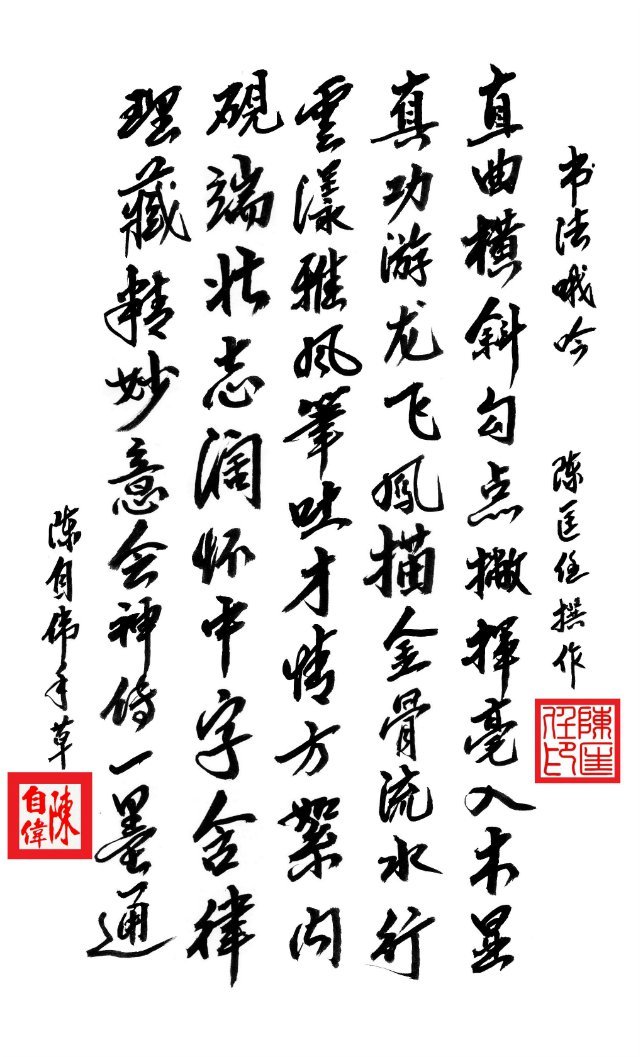 书法哦吟 陈匡任撰作
陳匡任印
直曲横斜勾点撇挥毫入木显
真功游龙飞凤描金骨流水行
雲漾雅风筆吐才情方絮内
砚端壮志阔怀中字含律
理藏精妙意会神传一墨通
陈自伟手草
陳自偉